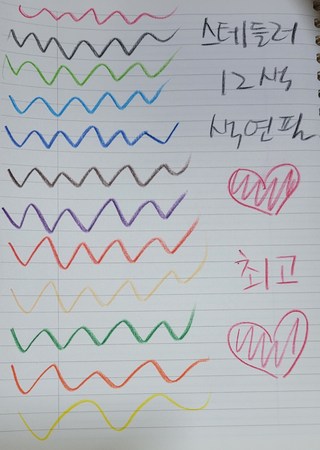 스테들러
12색
색연필
최고